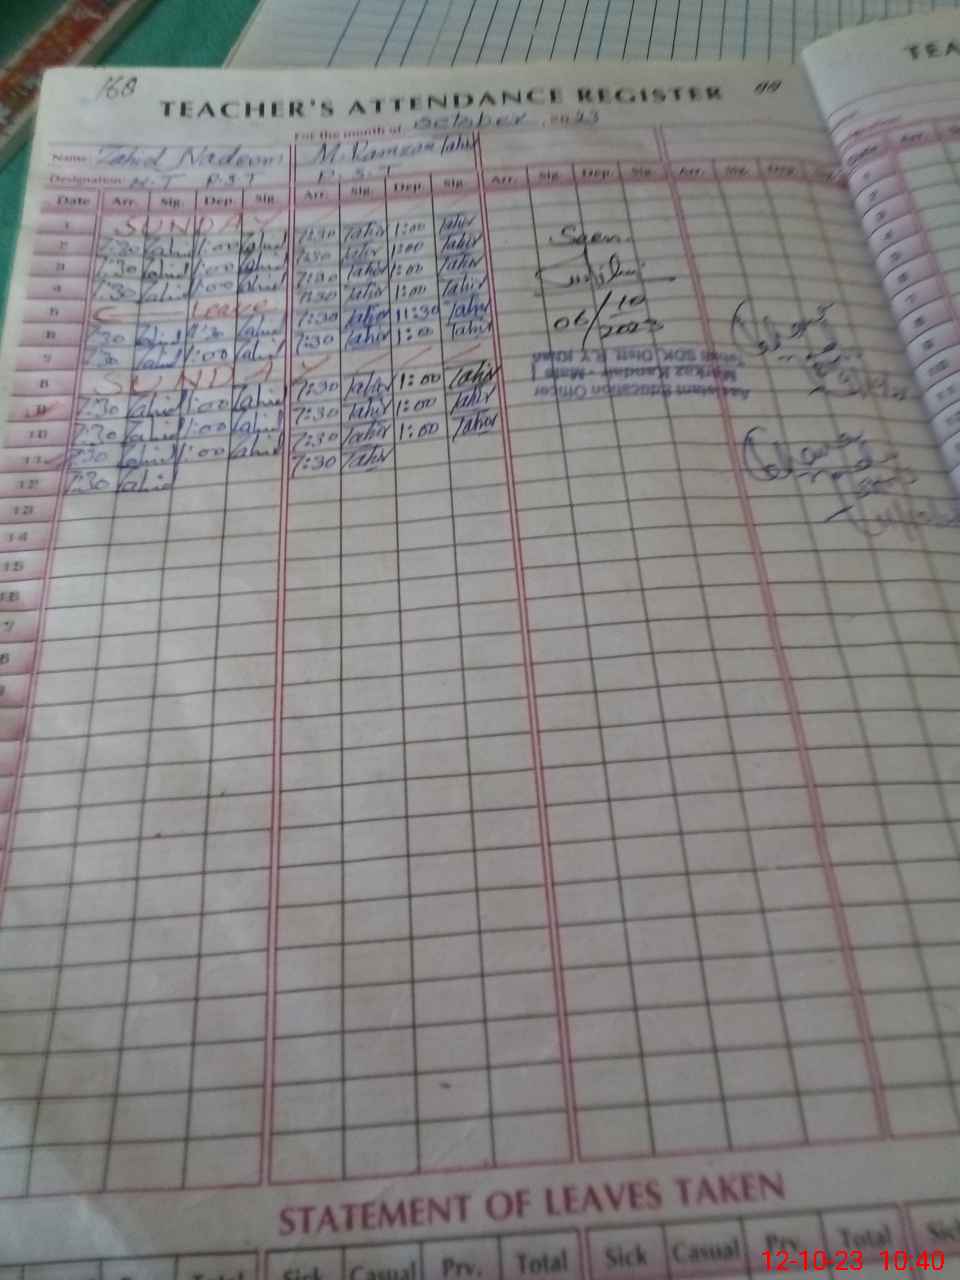 168
TEACHER'S ATTENDANCE REGISTER
TEA
For the month of October 2023
Name: Zahid Nadeem M. Ramzan Tahir
Designation: H.T P.S.T P.S.T
Date Arr. Sig. Dep. Sig. Arr. Sig. Dep. Sig. Arr. Sig. Dep. Sig. Arr. Sig. Dep. Sig.
1 SUNDAY
2 7:30 Zahid 1:00 Zahid 7:30 Tahir 1:00 Tahir
3 7:30 Zahid 1:00 Zahid 7:30 Tahir 1:00 Tahir
4 7:30 Zahid 1:00 Zahid 7:30 Tahir 1:00 Tahir
5 C Leave 7:30 Tahir 1:00 Tahir
6 7:30 Zahid 11:30 Zahid 7:30 Tahir 11:30 Tahir
7 7:30 Zahid 1:00 Zahid 7:30 Tahir 1:00 Tahir
8 SUNDAY
9 7:30 Zahid 1:00 Zahid 7:30 Tahir 1:00 Tahir
10 7:30 Zahid 1:00 Zahid 7:30 Tahir 1:00 Tahir
11 7:30 Zahid 1:00 Zahid 7:30 Tahir 1:00 Tahir
12 7:30 Zahid 7:30 Tahir
13
14
15
16
Seen
06/10
2023
Assistant Education Officer
Markaz Kandair - Male
SDK, Distt. R.Y. Khan
STATEMENT OF LEAVES TAKEN
Total Sick Casual Prv. Total Sick Casual Prv. Total Sick
12-10-23 10:40